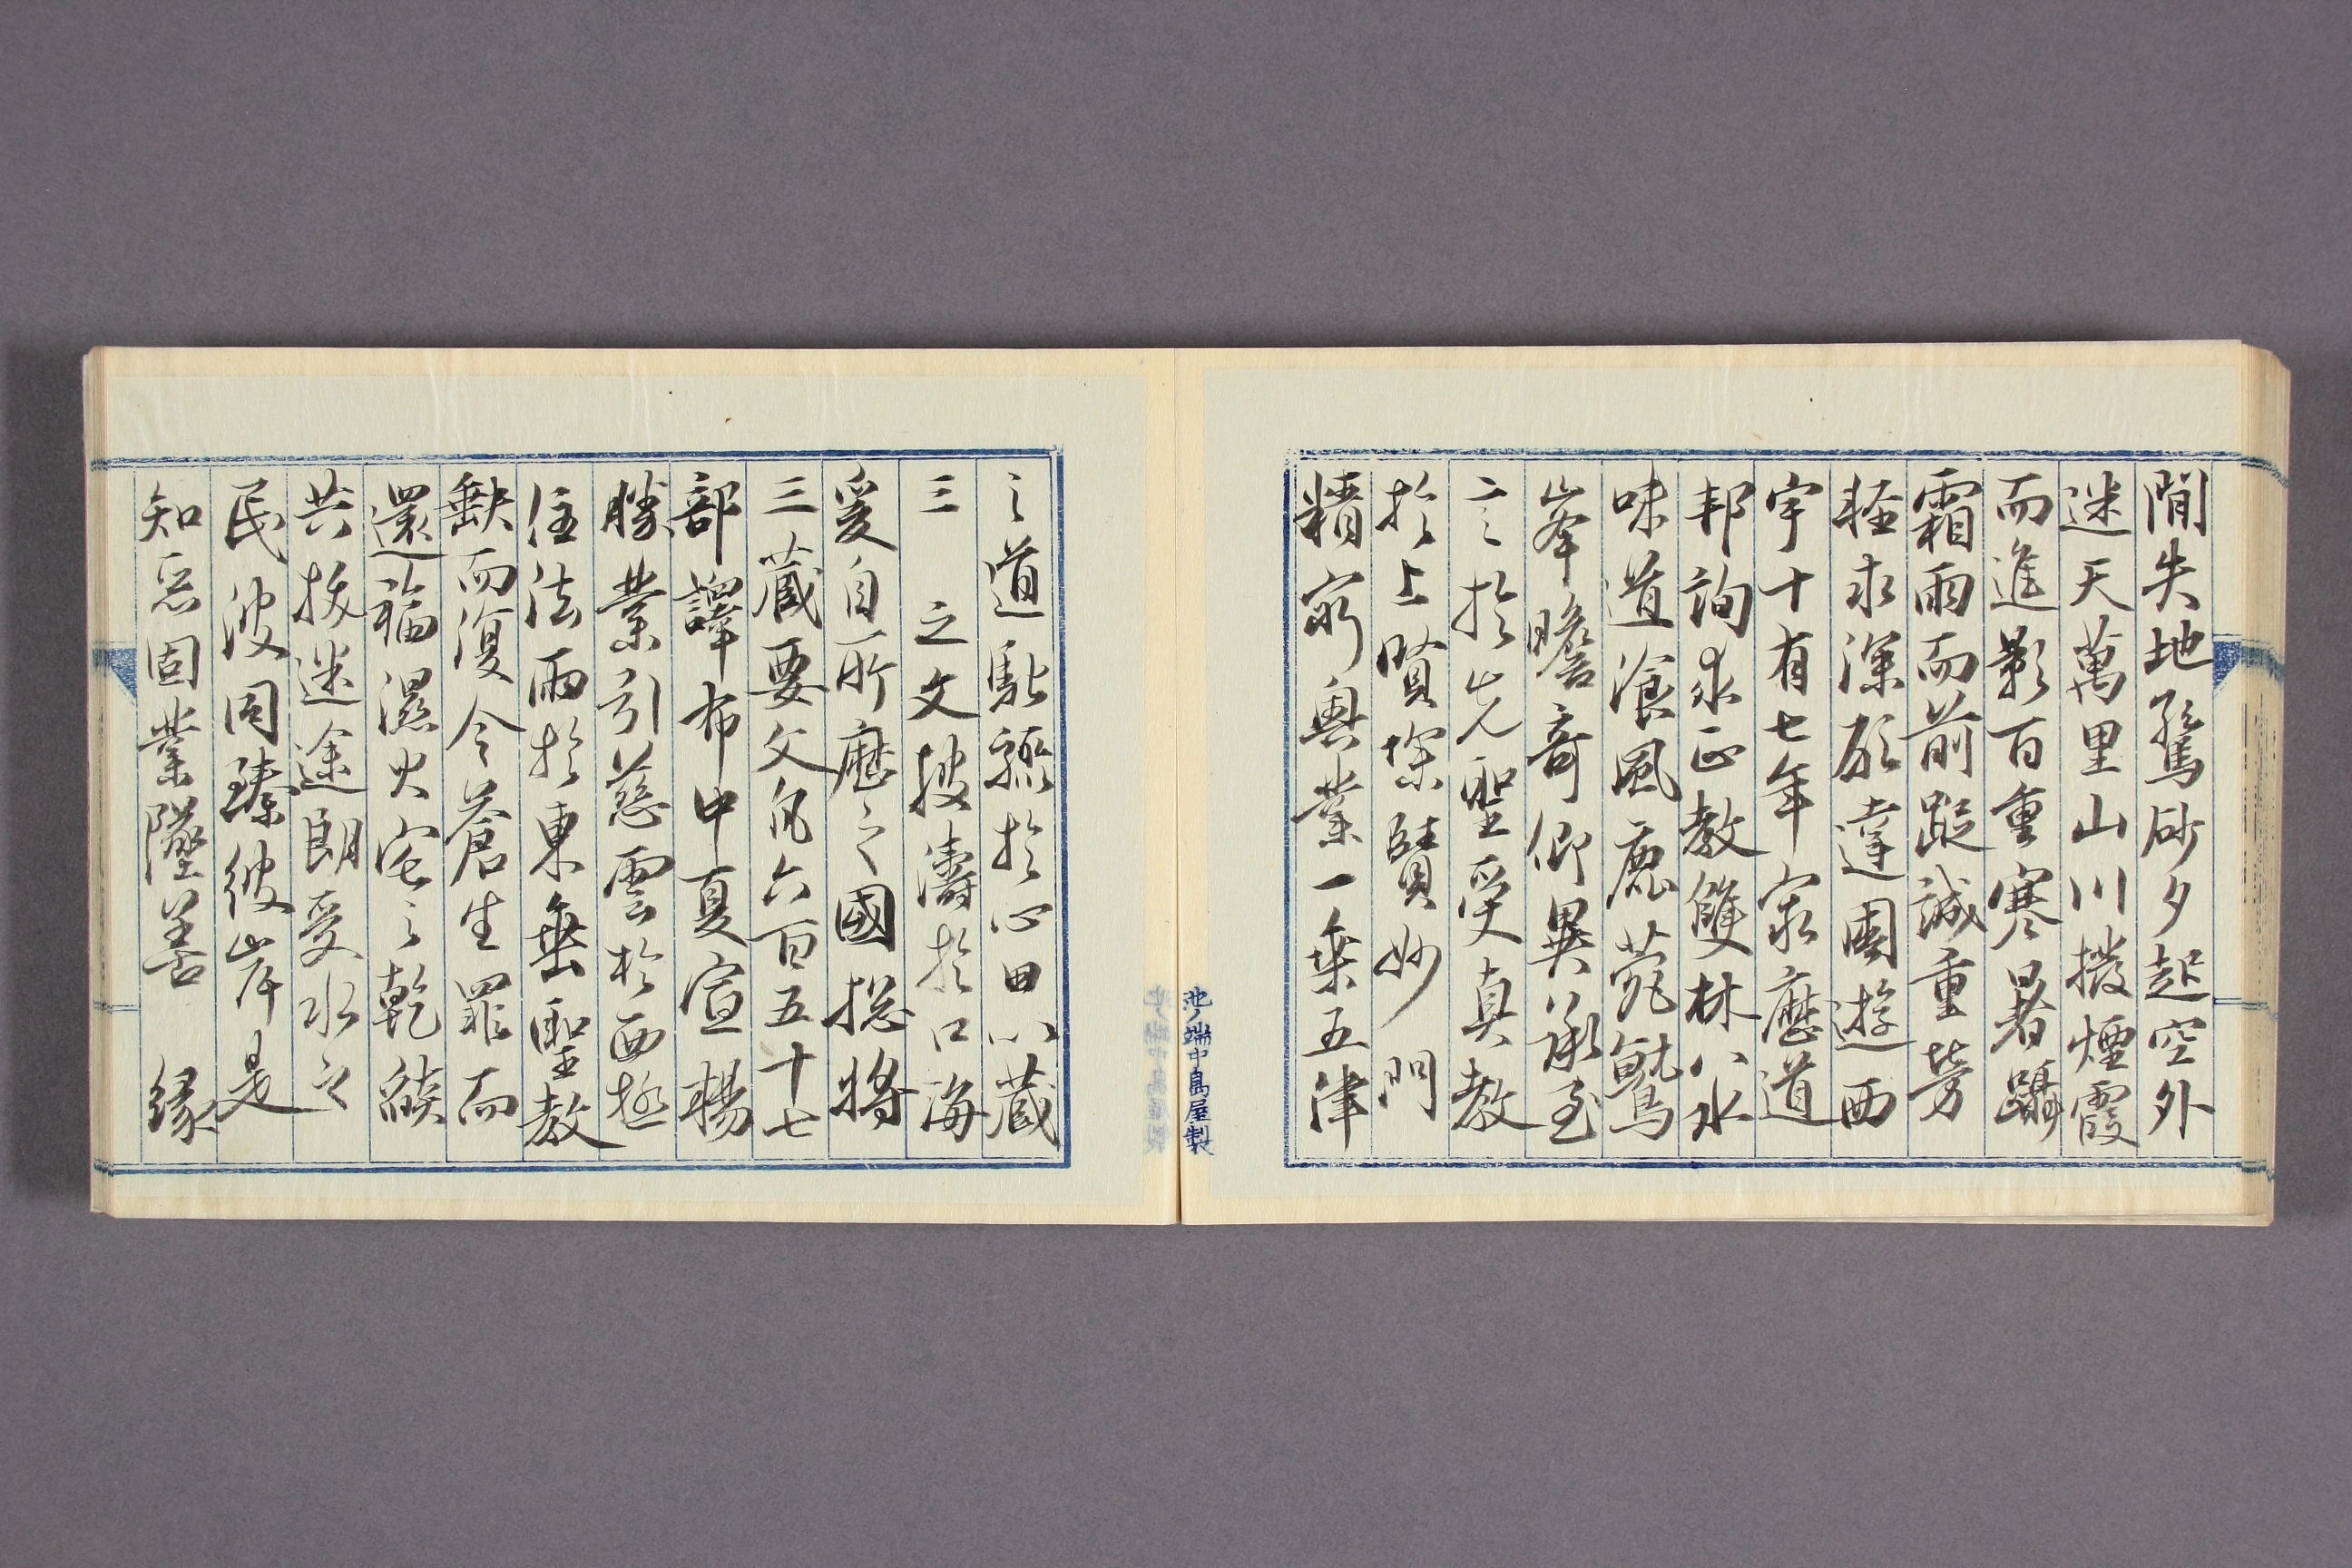 間失地驚砂夕起空外
迷天萬里山川撥煙霞
而進影百重寒暑躡
霜雨而前蹤誠重勞
輕求深願達周遊西
宇十有七年窮歷道
邦詢求正教雙林八水
味道飡風鹿菀鷲
峯瞻奇仰異承至
言於先聖受真教
於上賢探賾妙門
精窮奧業一乘五律
之道馳驟於心田八藏
三之文波濤於口海
爰自所歷之國揔將
三藏要文凡六百五十七
部譯布中夏宣揚
勝業引慈雲於西極
注法雨於東垂聖教
缺而復全蒼生罪而
還福濕火宅之乾燄
共拔迷途朗愛水之
昬波同臻彼岸是
知惡因業墜善緣
池ノ端中島屋製